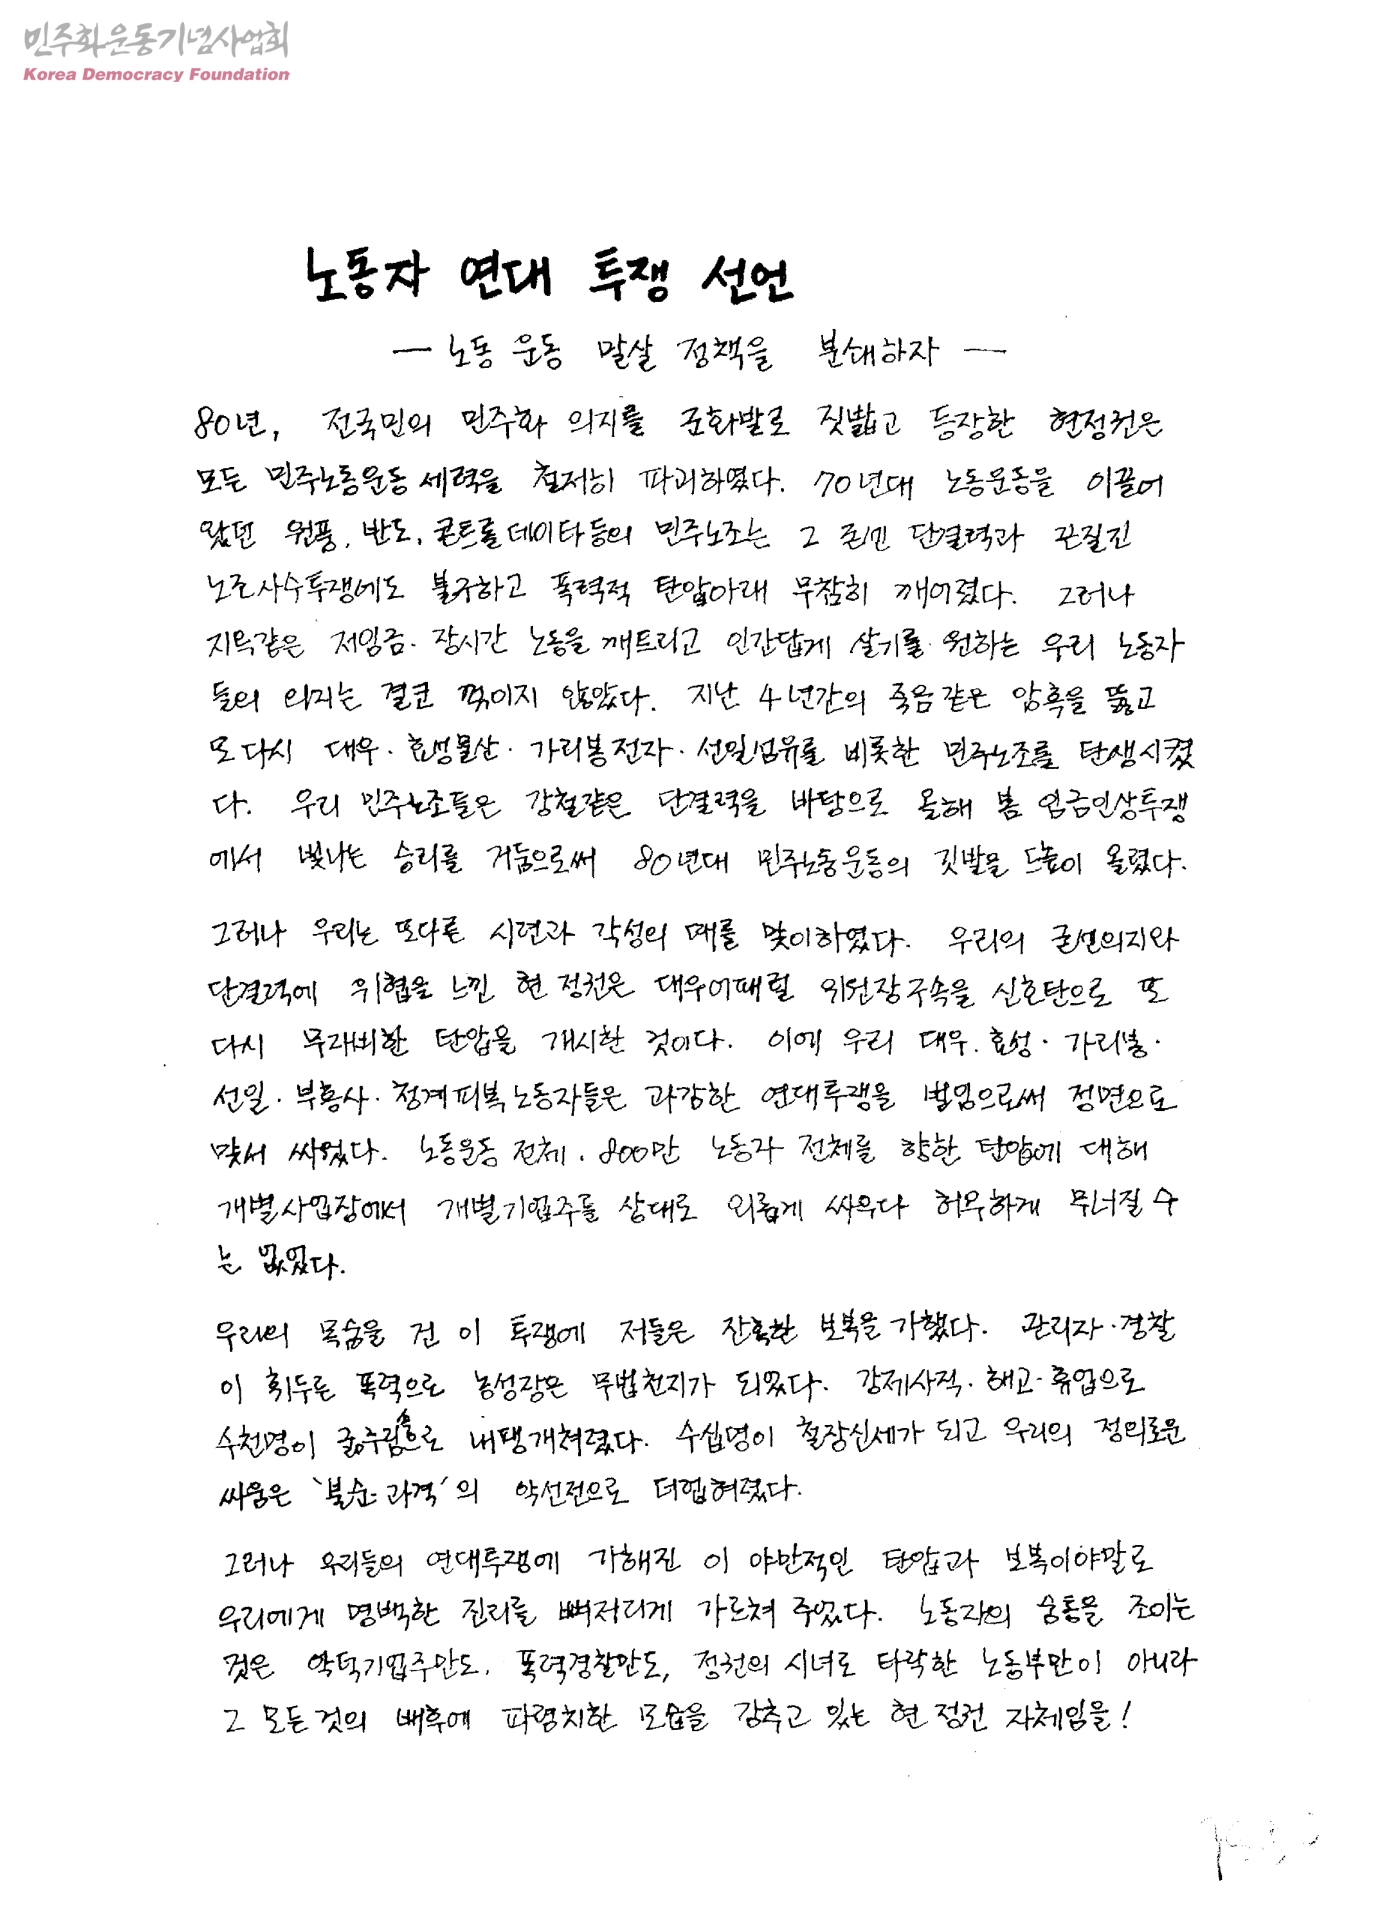 민주화운동기념사업회
Korea Democracy Foundation
노동자 연대 투쟁 선언
— 노동 운동 말살 정책을 분쇄하자 —
80년, 전국민의 민주화 의지를 군화발로 짓밟고 등장한 현정권은
모든 민주노동운동 세력을 철저히 파괴하였다. 70년대 노동운동을 이끌어
왔던 원풍, 반도, 콘트롤데이타등의 민주노조는 그 굳센 단결력과 끈질긴
노조사수투쟁에도 불구하고 폭력적 탄압아래 무참히 깨어졌다. 그러나
지옥같은 저임금·장시간 노동을 깨트리고 인간답게 살기를 원하는 우리 노동자
들의 의지는 결코 꺽이지 않았다. 지난 4년간의 죽음같은 암흑을 뚫고
또다시 대우·효성물산·가리봉전자·선일섬유를 비롯한 민주노조를 탄생시켰
다. 우리 민주노조들은 강철같은 단결력을 바탕으로 올해 봄 임금인상투쟁
에서 빛나는 승리를 거둠으로써 80년대 민주노동운동의 깃발을 드높이 올렸다.
그러나 우리는 또다른 시련과 각성의 때를 맞이하였다. 우리의 굳센의지와
단결력에 위협을 느낀 현 정권은 대우어패럴 위원장구속을 신호탄으로 또
다시 무자비한 탄압을 개시한 것이다. 이에 우리 대우·효성·가리봉·
선일·부흥사·청계피복노동자들은 과감한 연대투쟁을 벌임으로써 정면으로
맞서 싸웠다. 노동운동 전체, 800만 노동자 전체를 향한 탄압에 대해
개별사업장에서 개별기업주를 상대로 외롭게 싸우다 허무하게 무너질 수
는 없었다.
우리의 목숨을 건 이 투쟁에 저들은 잔혹한 보복을 가했다. 관리자·경찰
이 휘두른 폭력으로 농성장은 무법천지가 되었다. 강제사직·해고·휴업으로
수천명이 굶주림속으로 내팽개쳐졌다. 수십명이 철장신세가 되고 우리의 정의로운
싸움은 '불순·과격'의 악선전으로 더럽혀졌다.
그러나 우리들의 연대투쟁에 가해진 이 야만적인 탄압과 보복이야말로
우리에게 명백한 진리를 뼈저리게 가르쳐 주었다. 노동자의 숨통을 조이는
것은 악덕기업주만도, 폭력경찰만도, 정권의 시녀로 타락한 노동부만이 아니라
그 모든것의 배후에 파렴치한 모습을 감추고 있는 현 정권 자체임을!